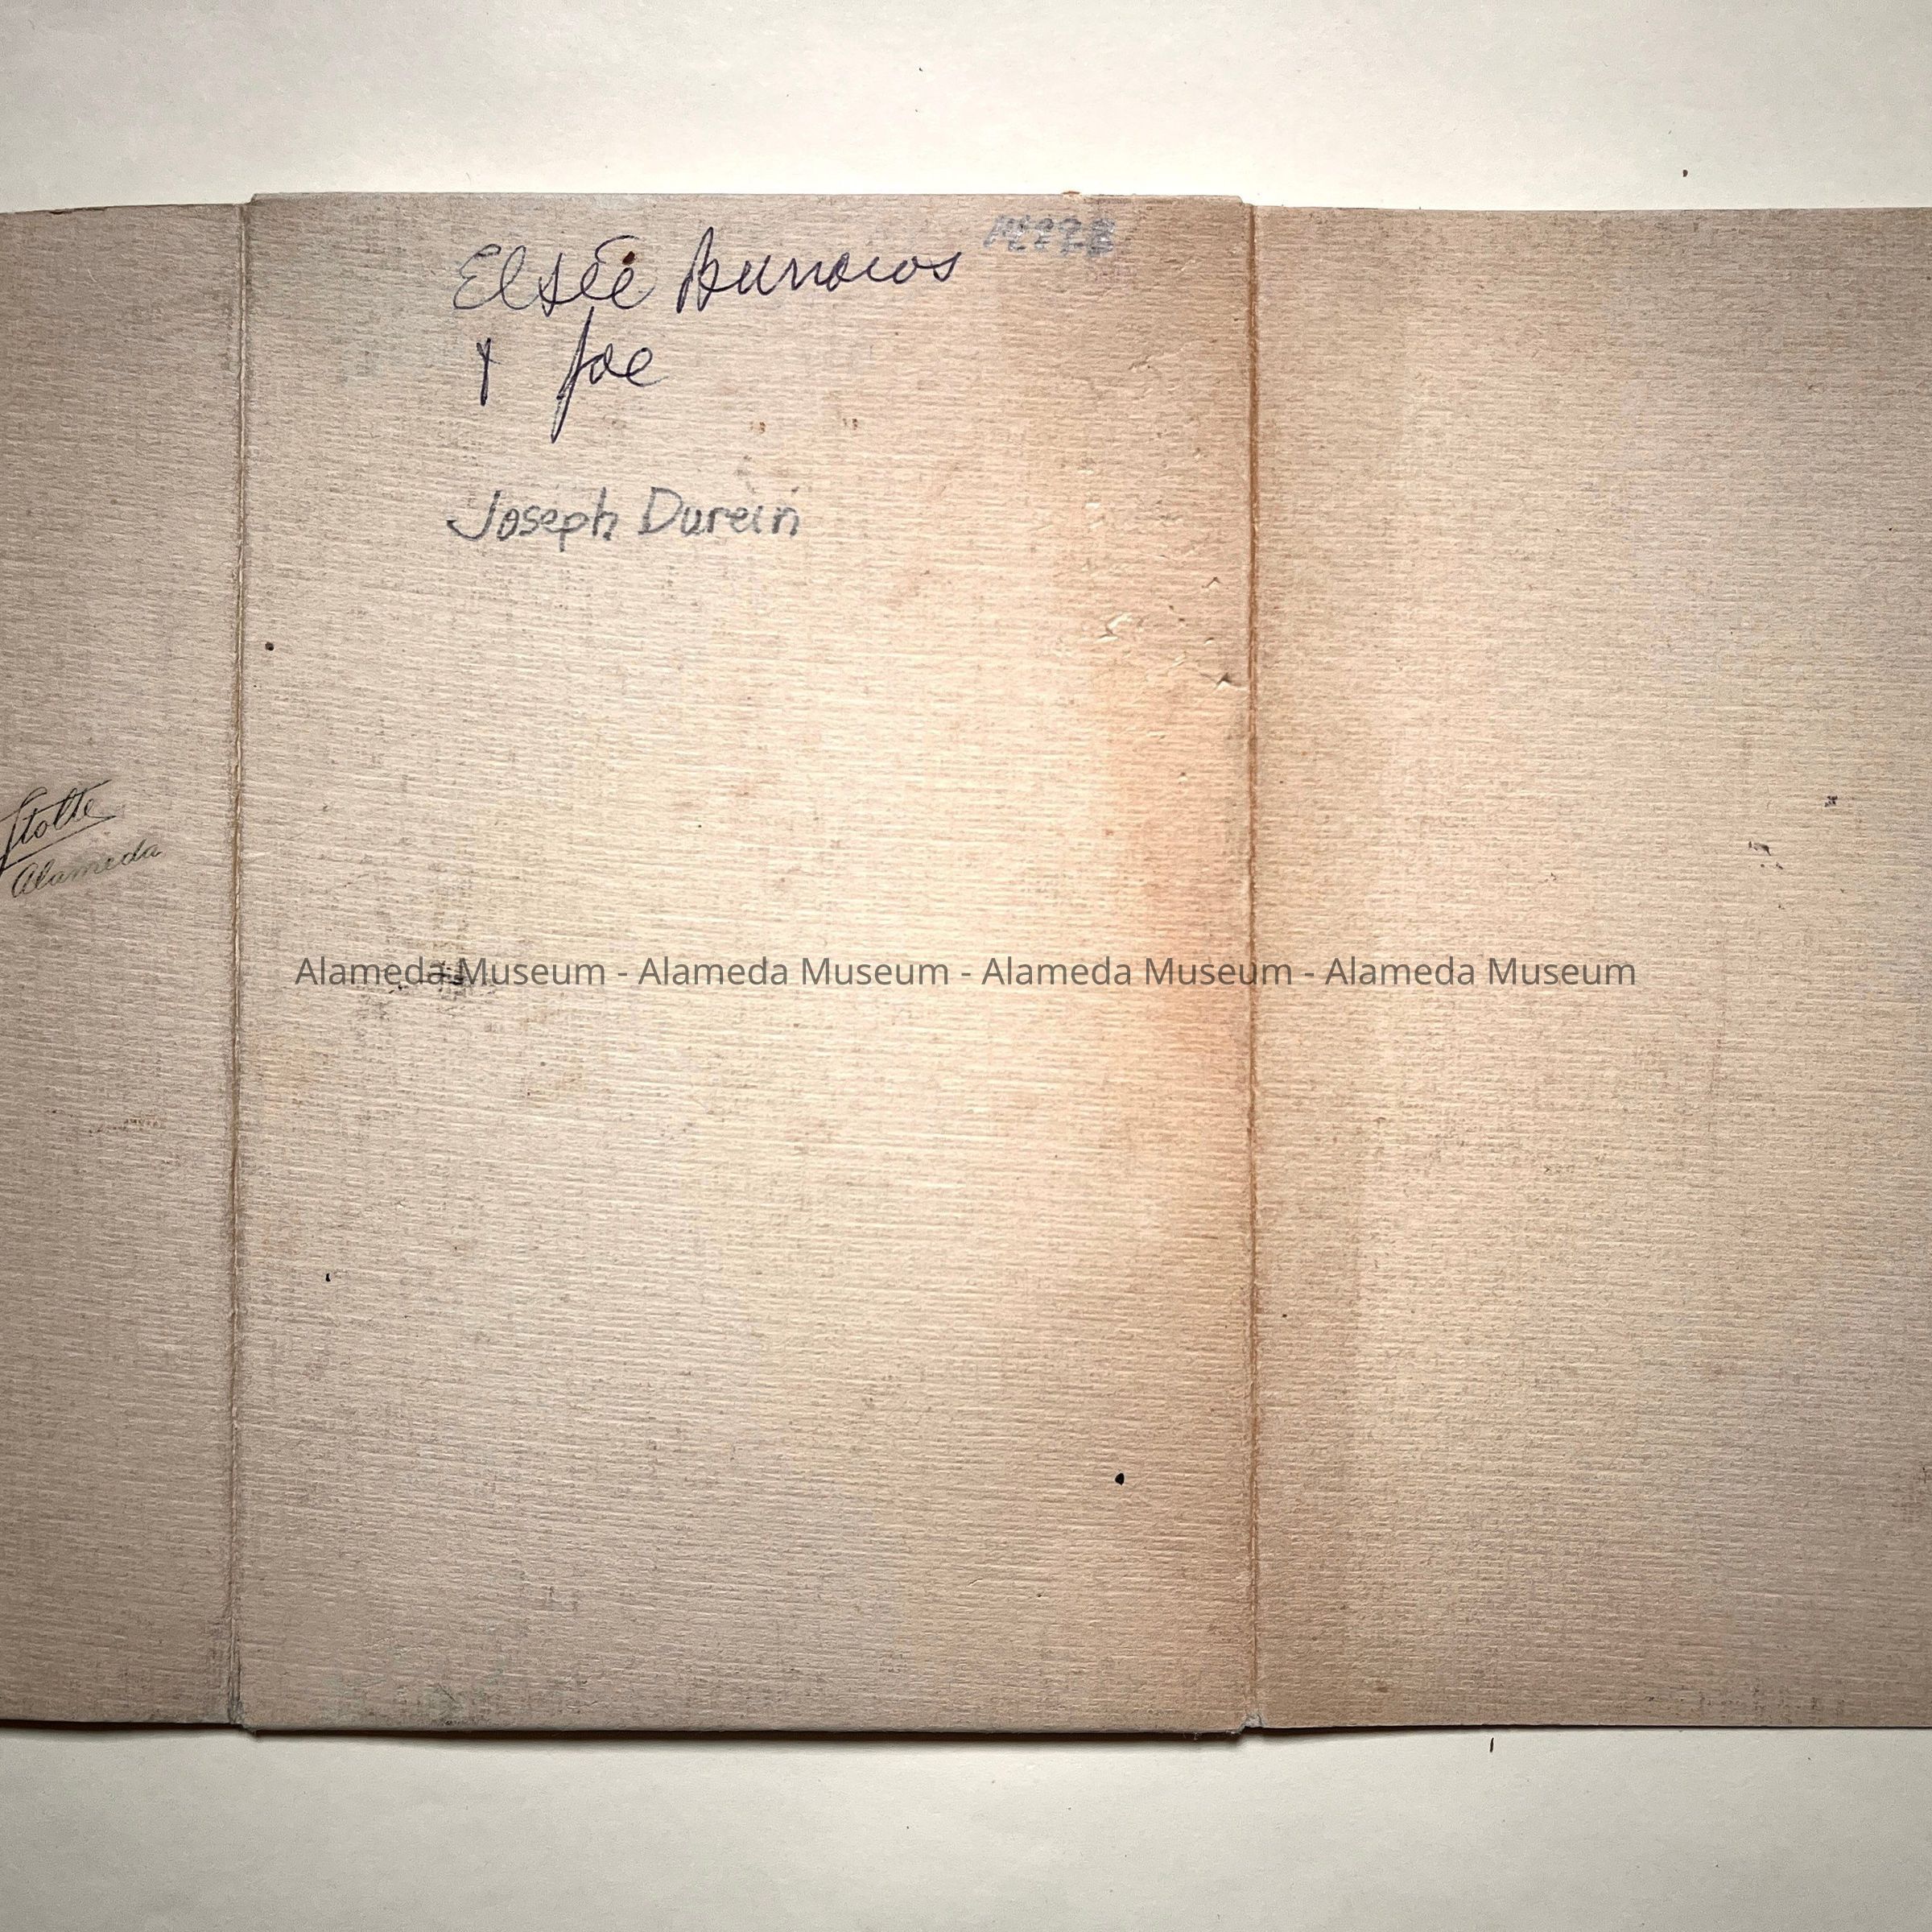 Elsie Burrows
& Joe
Joseph Durein
Stolte
Alameda
Alameda Museum - Alameda Museum - Alameda Museum - Alameda Museum